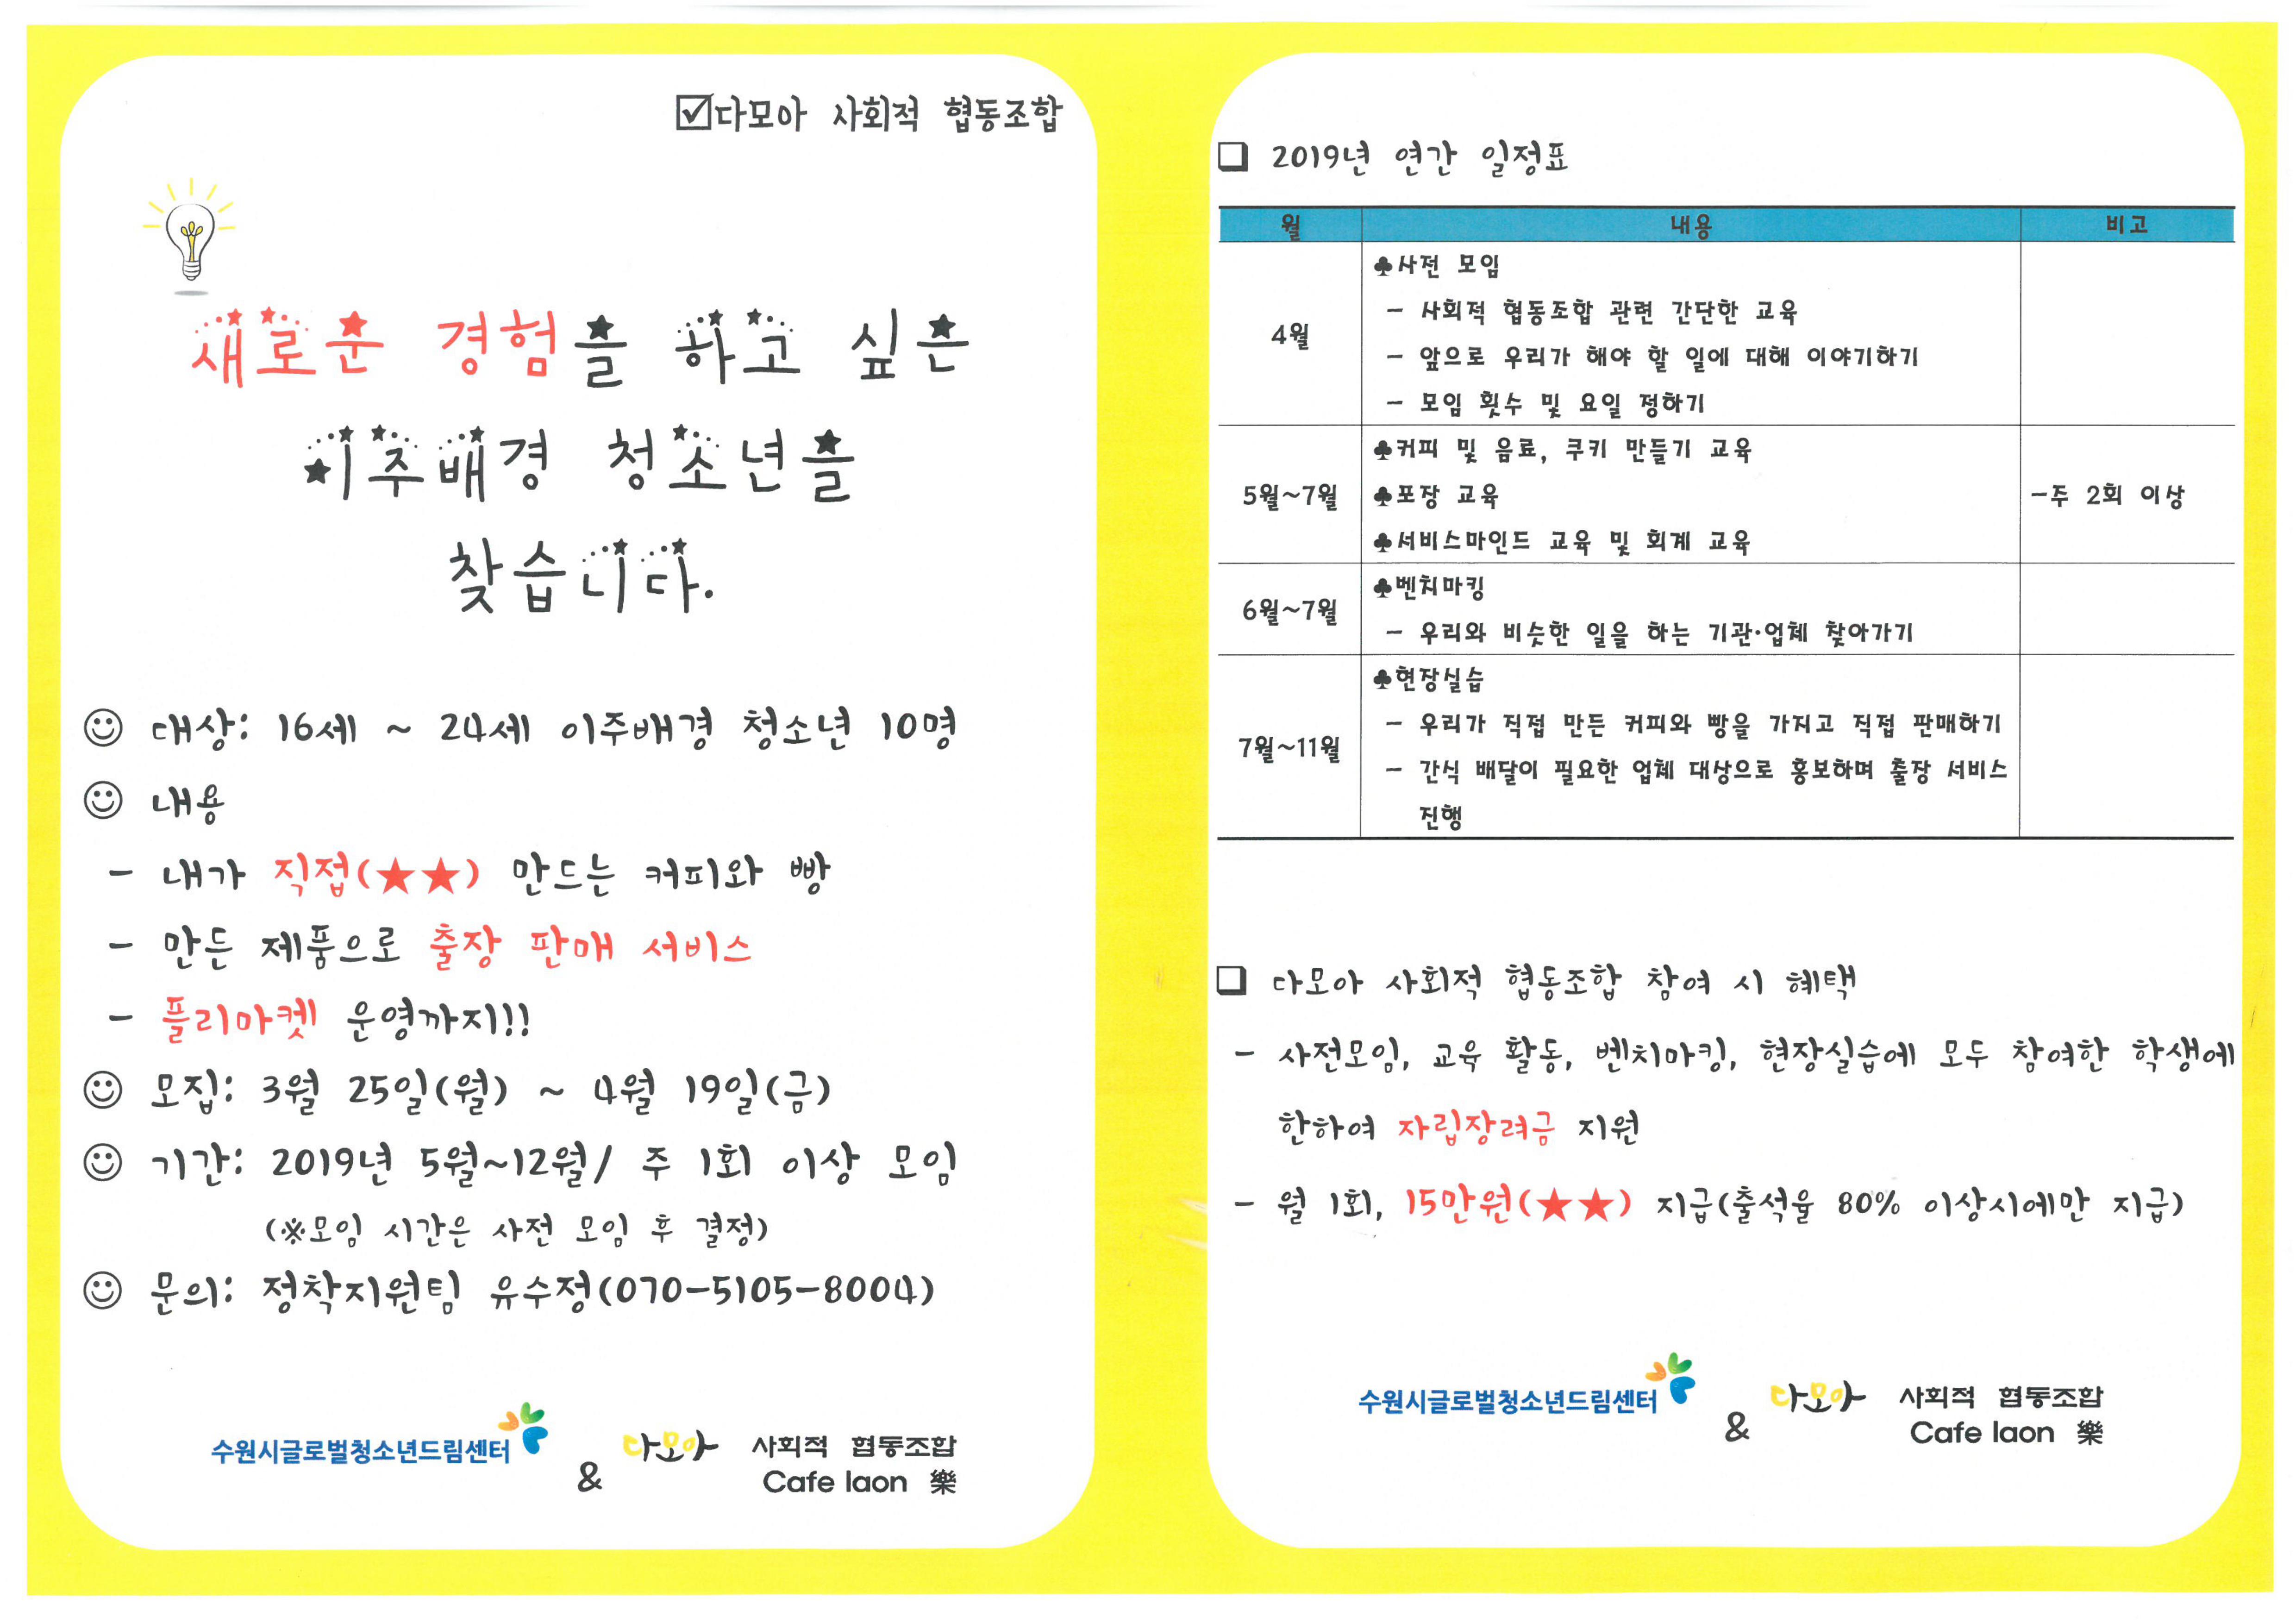 ☑다모아 사회적 협동조합
새로운 경험을 하고 싶은
이주배경 청소년을
찾습니다.
☺ 대상: 16세 ~ 24세 이주배경 청소년 10명
☺ 내용
- 내가 직접(★★) 만드는 커피와 빵
- 만든 제품으로 출장 판매 서비스
- 플리마켓 운영까지!!
☺ 모집: 3월 25일(월) ~ 4월 19일(금)
☺ 기간: 2019년 5월~12월/ 주 1회 이상 모임
(※모임 시간은 사전 모임 후 결정)
☺ 문의: 정착지원팀 유수정(070-5105-8004)
수원시글로벌청소년드림센터 & 다모아 사회적 협동조합
Cafe laon 樂
❑ 2019년 연간 일정표
월 내용 비고
4월
♣사전 모임
- 사회적 협동조합 관련 간단한 교육
- 앞으로 우리가 해야 할 일에 대해 이야기하기
- 모임 횟수 및 요일 정하기
5월~7월
♣커피 및 음료, 쿠키 만들기 교육
♣포장 교육
♣서비스마인드 교육 및 회계 교육
-주 2회 이상
6월~7월
♣벤치마킹
- 우리와 비슷한 일을 하는 기관·업체 찾아가기
7월~11월
♣현장실습
- 우리가 직접 만든 커피와 빵을 가지고 직접 판매하기
- 간식 배달이 필요한 업체 대상으로 홍보하며 출장 서비스
진행
❑ 다모아 사회적 협동조합 참여 시 혜택
- 사전모임, 교육 활동, 벤치마킹, 현장실습에 모두 참여한 학생에
한하여 자립장려금 지원
- 월 1회, 15만원(★★) 지급(출석율 80% 이상시에만 지급)
수원시글로벌청소년드림센터 & 다모아 사회적 협동조합
Cafe laon 樂